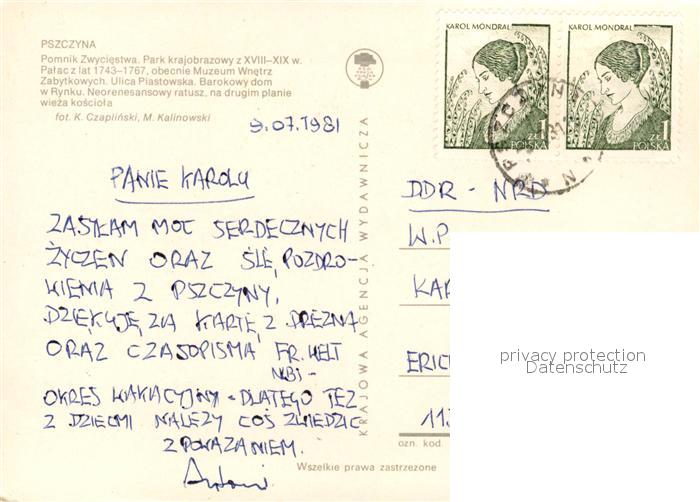 PSZCZYNA
Pomnik Zwycięstwa. Park krajobrazowy z XVIII—XIX w.
Pałac z lat 1743—1767, obecnie Muzeum Wnętrz
Zabytkowych. Ulica Piastowska. Barokowy dom
w Rynku. Neorenesansowy ratusz, na drugim planie
wieża kościoła
fot. K. Czapliński, M. Kalinowski
KAROL MONDRAL
1 ZŁ
POLSKA
KAROL MONDRAL
1 ZŁ
POLSKA
9.07.1981
PANIE KAROLU
ZASYŁAM MOC SERDECZNYCH
ŻYCZEN ORAZ ŚLĘ POZDRO-
WIENIA Z PSZCZYNY,
DZIĘKUJĘ ZA KARTĘ Z DREZNA
ORAZ CZASOPISMA FR. WELT
NBI -
OKRES WAKACYJNY - DLATEGO TEŻ
Z DZIEĆMI NALEŻY COŚ ZWIEDZIĆ
Z POWAŻANIEM.
KRAJOWA AGENCJA WYDAWNICZA
DDR - NRD
W.P
KAR
ERIC
11
ozn. kod.
Wszelkie prawa zastrzeżone
privacy protection
Datenschutz